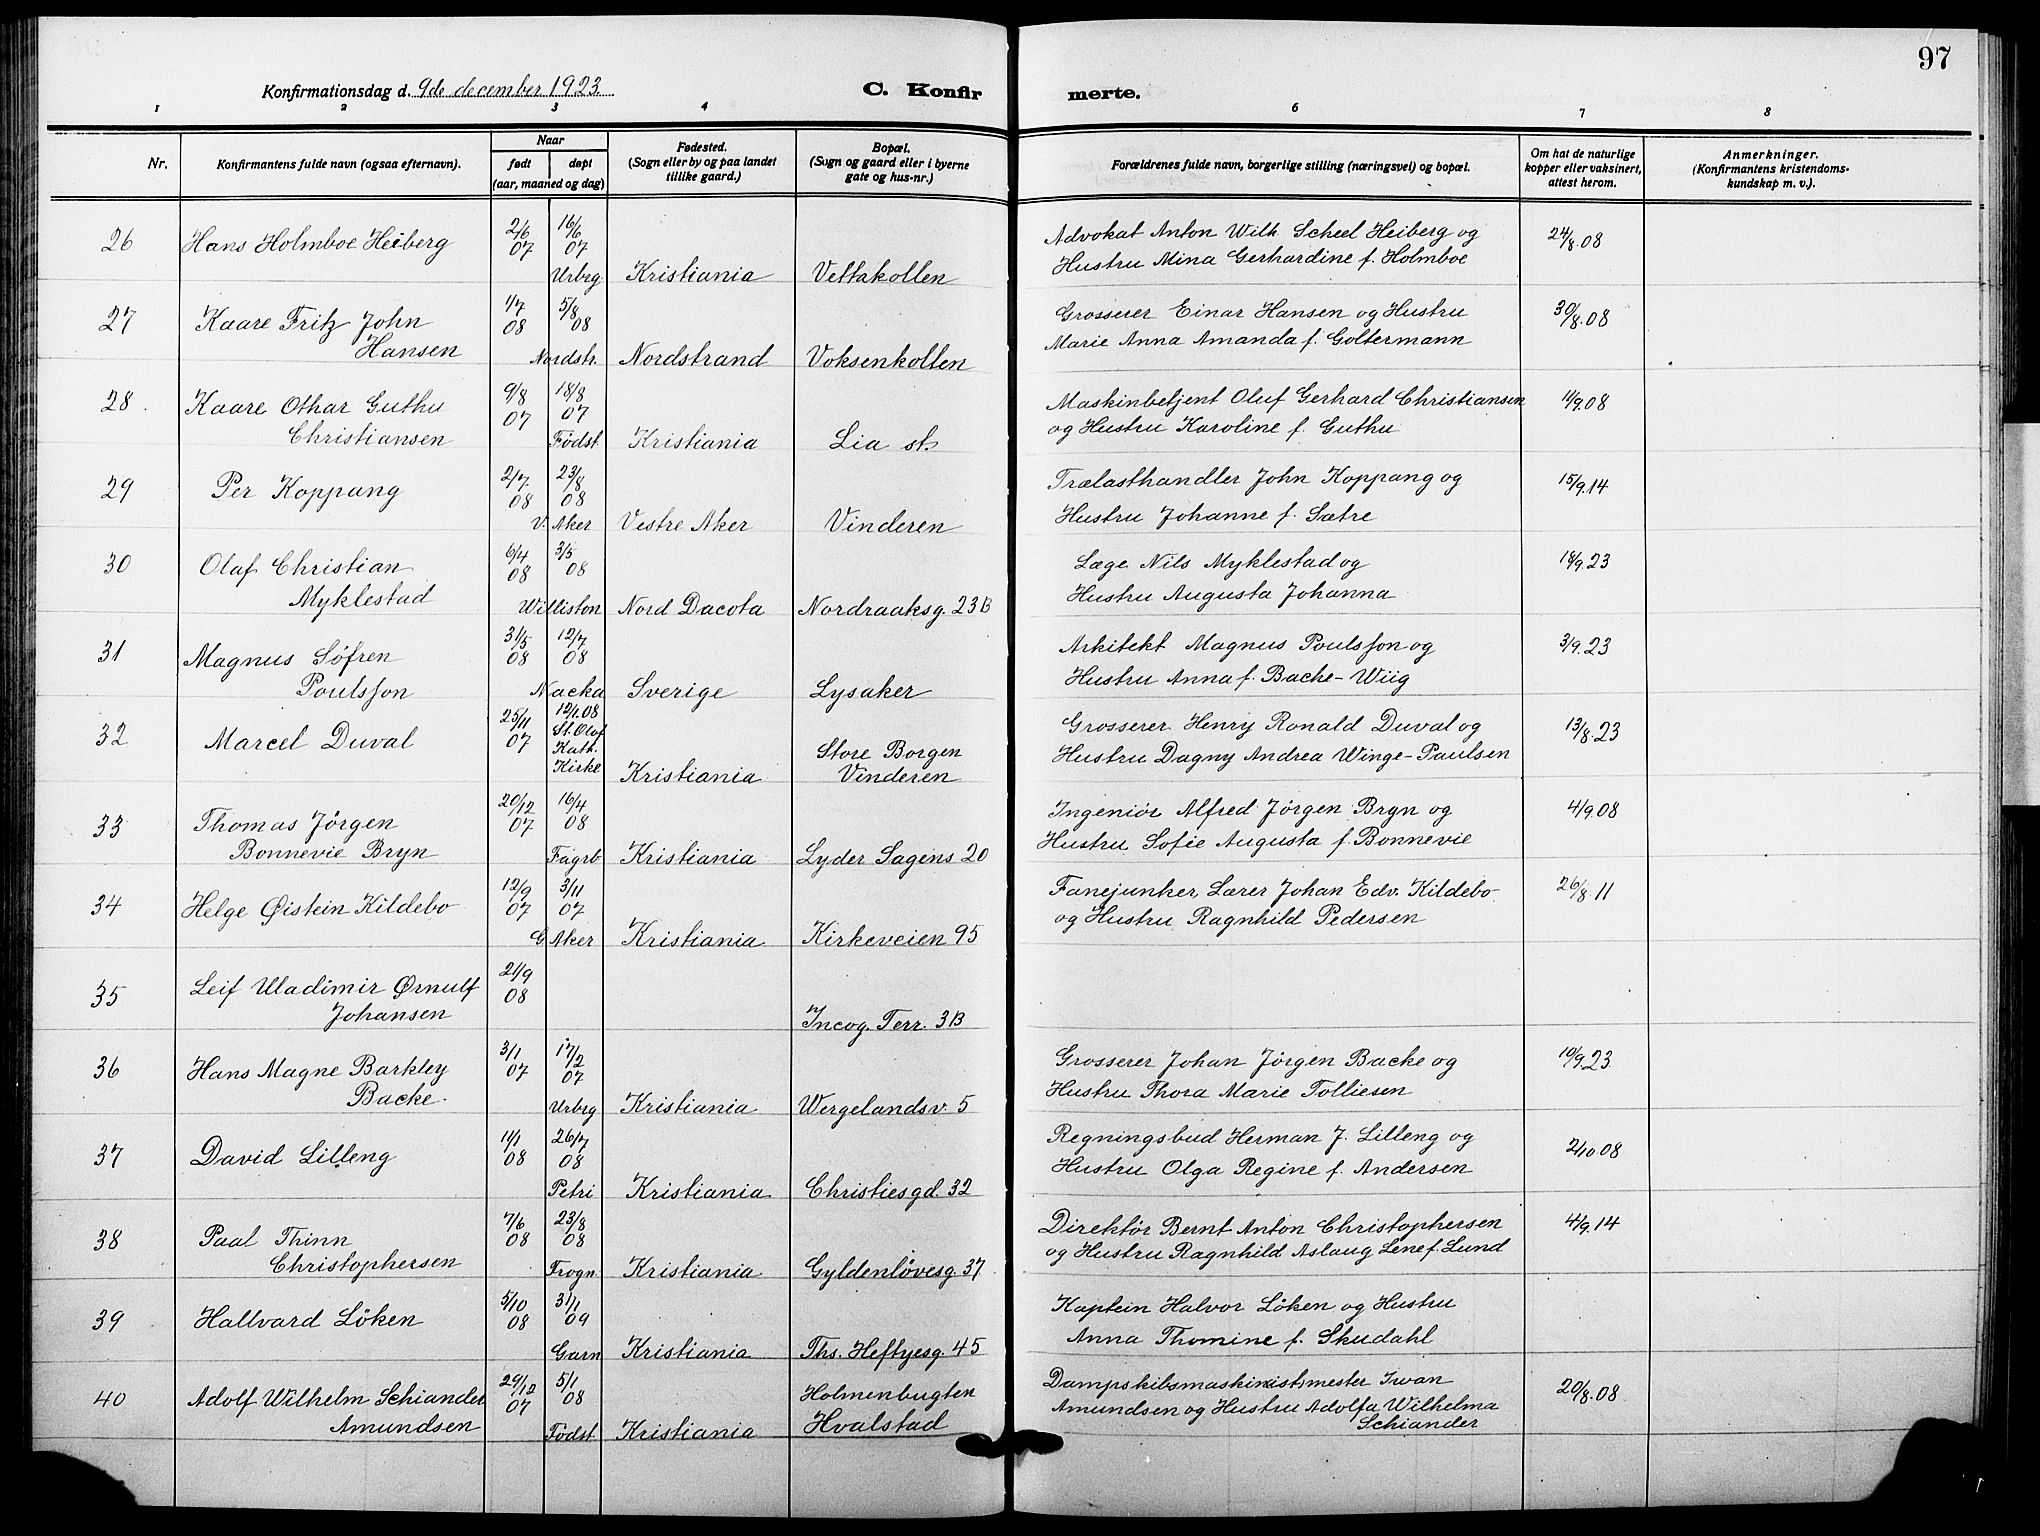 97
Konfirmationsdag d. 9de december 1923. C. Konfirmerte.
1 2 3 4 6 7 8
Nr. Konfirmantens fulde navn (ogsaa efternavn). Naar født døpt (aar, maaned og dag) Fødested. (Sogn eller by og paa landet tillike gaard.) Bopæl. (Sogn og gaard eller i byerne gate og hus-nr.) Forældrenes fulde navn, borgerlige stilling (næringsvei) og bopæl. Om hat de naturlige kopper eller vaksinert, attest herom. Anmerkninger. (Konfirmantens kristendomskundskap m. v.).
26 Hans Holmboe Heiberg 2/6 07 16/6 07 Advokat Anton Wilh. Scheel Heiberg og 24/8.08
Urbrg Kristiania Vettakollen Hustru Mina Gerhardine f. Holmboe
27 Kaare Fritz John 1/7 08 5/8 08 Grosserer Einar Hansen og Hustru 30/8.08
Hansen Nordstr. Nordstrand Voksenkollen Marie Anna Amanda f. Goltermann
28. Kaare Othar Guthu 9/8 07 18/8 07 Maskinbetjent Oluf Gerhard Christiansen 11/9.08
Christiansen Födst. Kristiania Lia st. og Hustru Karoline f. Guthu
29 Per Koppang 2/7 08 23/8 08 Trælasthandler John Koppang og 15/9.14
V. Aker Vestre Aker Vinderen Hustru Johanne f. Sætre
30 Olaf Christian 6/4 08 3/5 08 Læge Nils Myklestad og 18/9.23
Myklestad Williston Nord Dacota Nordraaksg. 23B Hustru Augusta Johanna
31 Magnus Söfren 31/5 08 12/7 08 Arkitekt Magnus Poulsson og 3/9.23
Poulsson Nacka Sverige Lysaker Hustru Anna f. Backe-Wiig
32 Marcel Duval 25/11 07 12/1.08 St. Olaf Kath. Kirke Store Borgen Grosserer Henry Ronald Duval og 13/8.23
Kristiania Vinderen Hustru Dagny Andrea Winge-Paulsen
33 Thomas Jörgen 20/12 07 16/4 08 Ingeniör Alfred Jörgen Bryn og 4/9.08
Bonnevie Bryn Fagrb Kristiania Lyder Sagens 20 Hustru Sofie Augusta f. Bonnevie
34 Helge Øistein Kildebo 12/9 07 3/11 07 Fanejunker, Lærer Johan Edv. Kildebo 26/8.11
G. Aker Kristiania Kirkeveien 95 og Hustru Ragnhild Pedersen
35 Leif Uladimir Ørnulf 21/9 08
Johansen Incog. Terr. 3B
36 Hans Magne Barkley 3/1 07 17/2 07 Grosserer Johan Jörgen Backe og 10/9.23.
Backe. Urbrg Kristiania Wergelandsv. 5 Hustru Thora Marie Tolliesen
37 David Lilleng 11/1 08 26/7 08 Regningsbud Herman J. Lilleng og 2/10.08
Petri Kristiania Christiesgd. 32 Hustru Olga Regine f. Andersen
38 Paal Thinn 7/6 08 23/8 08 Direktör Bernt Anton Christophersen 4/9.14
Christophersen Frogn. Kristiania Gyldenlövesg. 37 og Hustru Ragnhild Aslaug Lene f. Lund
39 Hallvard Löken 5/10 08 31/1 09 Kaptein Halvor Löken og Hustru
Garn Kristiania Ths. Heftyesg. 45 Anna Thomine f. Skudahl
40 Adolf Wilhelm Schiander 29/12 07 5/1 08 Holmenbugten Dampskibsmaskin(ist)mester Iwan 20/8.08
Amundsen Födst. Kristiania Hvalstad Amundsen og Hustru Adolfa Wilhelma
Schiander